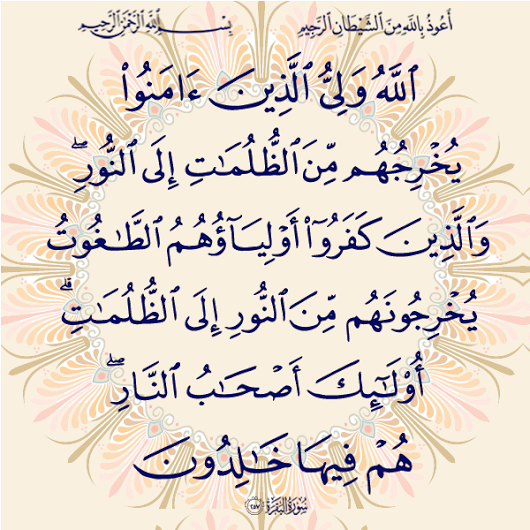 أَعُوذُ بِاللَّهِ مِنَ الشَّيْطَانِ الرَّجِيمِ بِسْمِ اللَّهِ الرَّحْمَٰنِ الرَّحِيمِ
ٱللَّهُ وَلِىُّ ٱلَّذِينَ ءَامَنُوا۟
يُخْرِجُهُم مِّنَ ٱلظُّلُمَـٰتِ إِلَى ٱلنُّورِ ۖ
وَٱلَّذِينَ كَفَرُوٓا۟ أَوْلِيَآؤُهُمُ ٱلطَّـٰغُوتُ
يُخْرِجُونَهُم مِّنَ ٱلنُّورِ إِلَى ٱلظُّلُمَـٰتِ ۗ
أُو۟لَـٰٓئِكَ أَصْحَـٰبُ ٱلنَّارِ ۖ
هُمْ فِيهَا خَـٰلِدُونَ
سُورَةُ البَقَرَةِ ٢٥٧